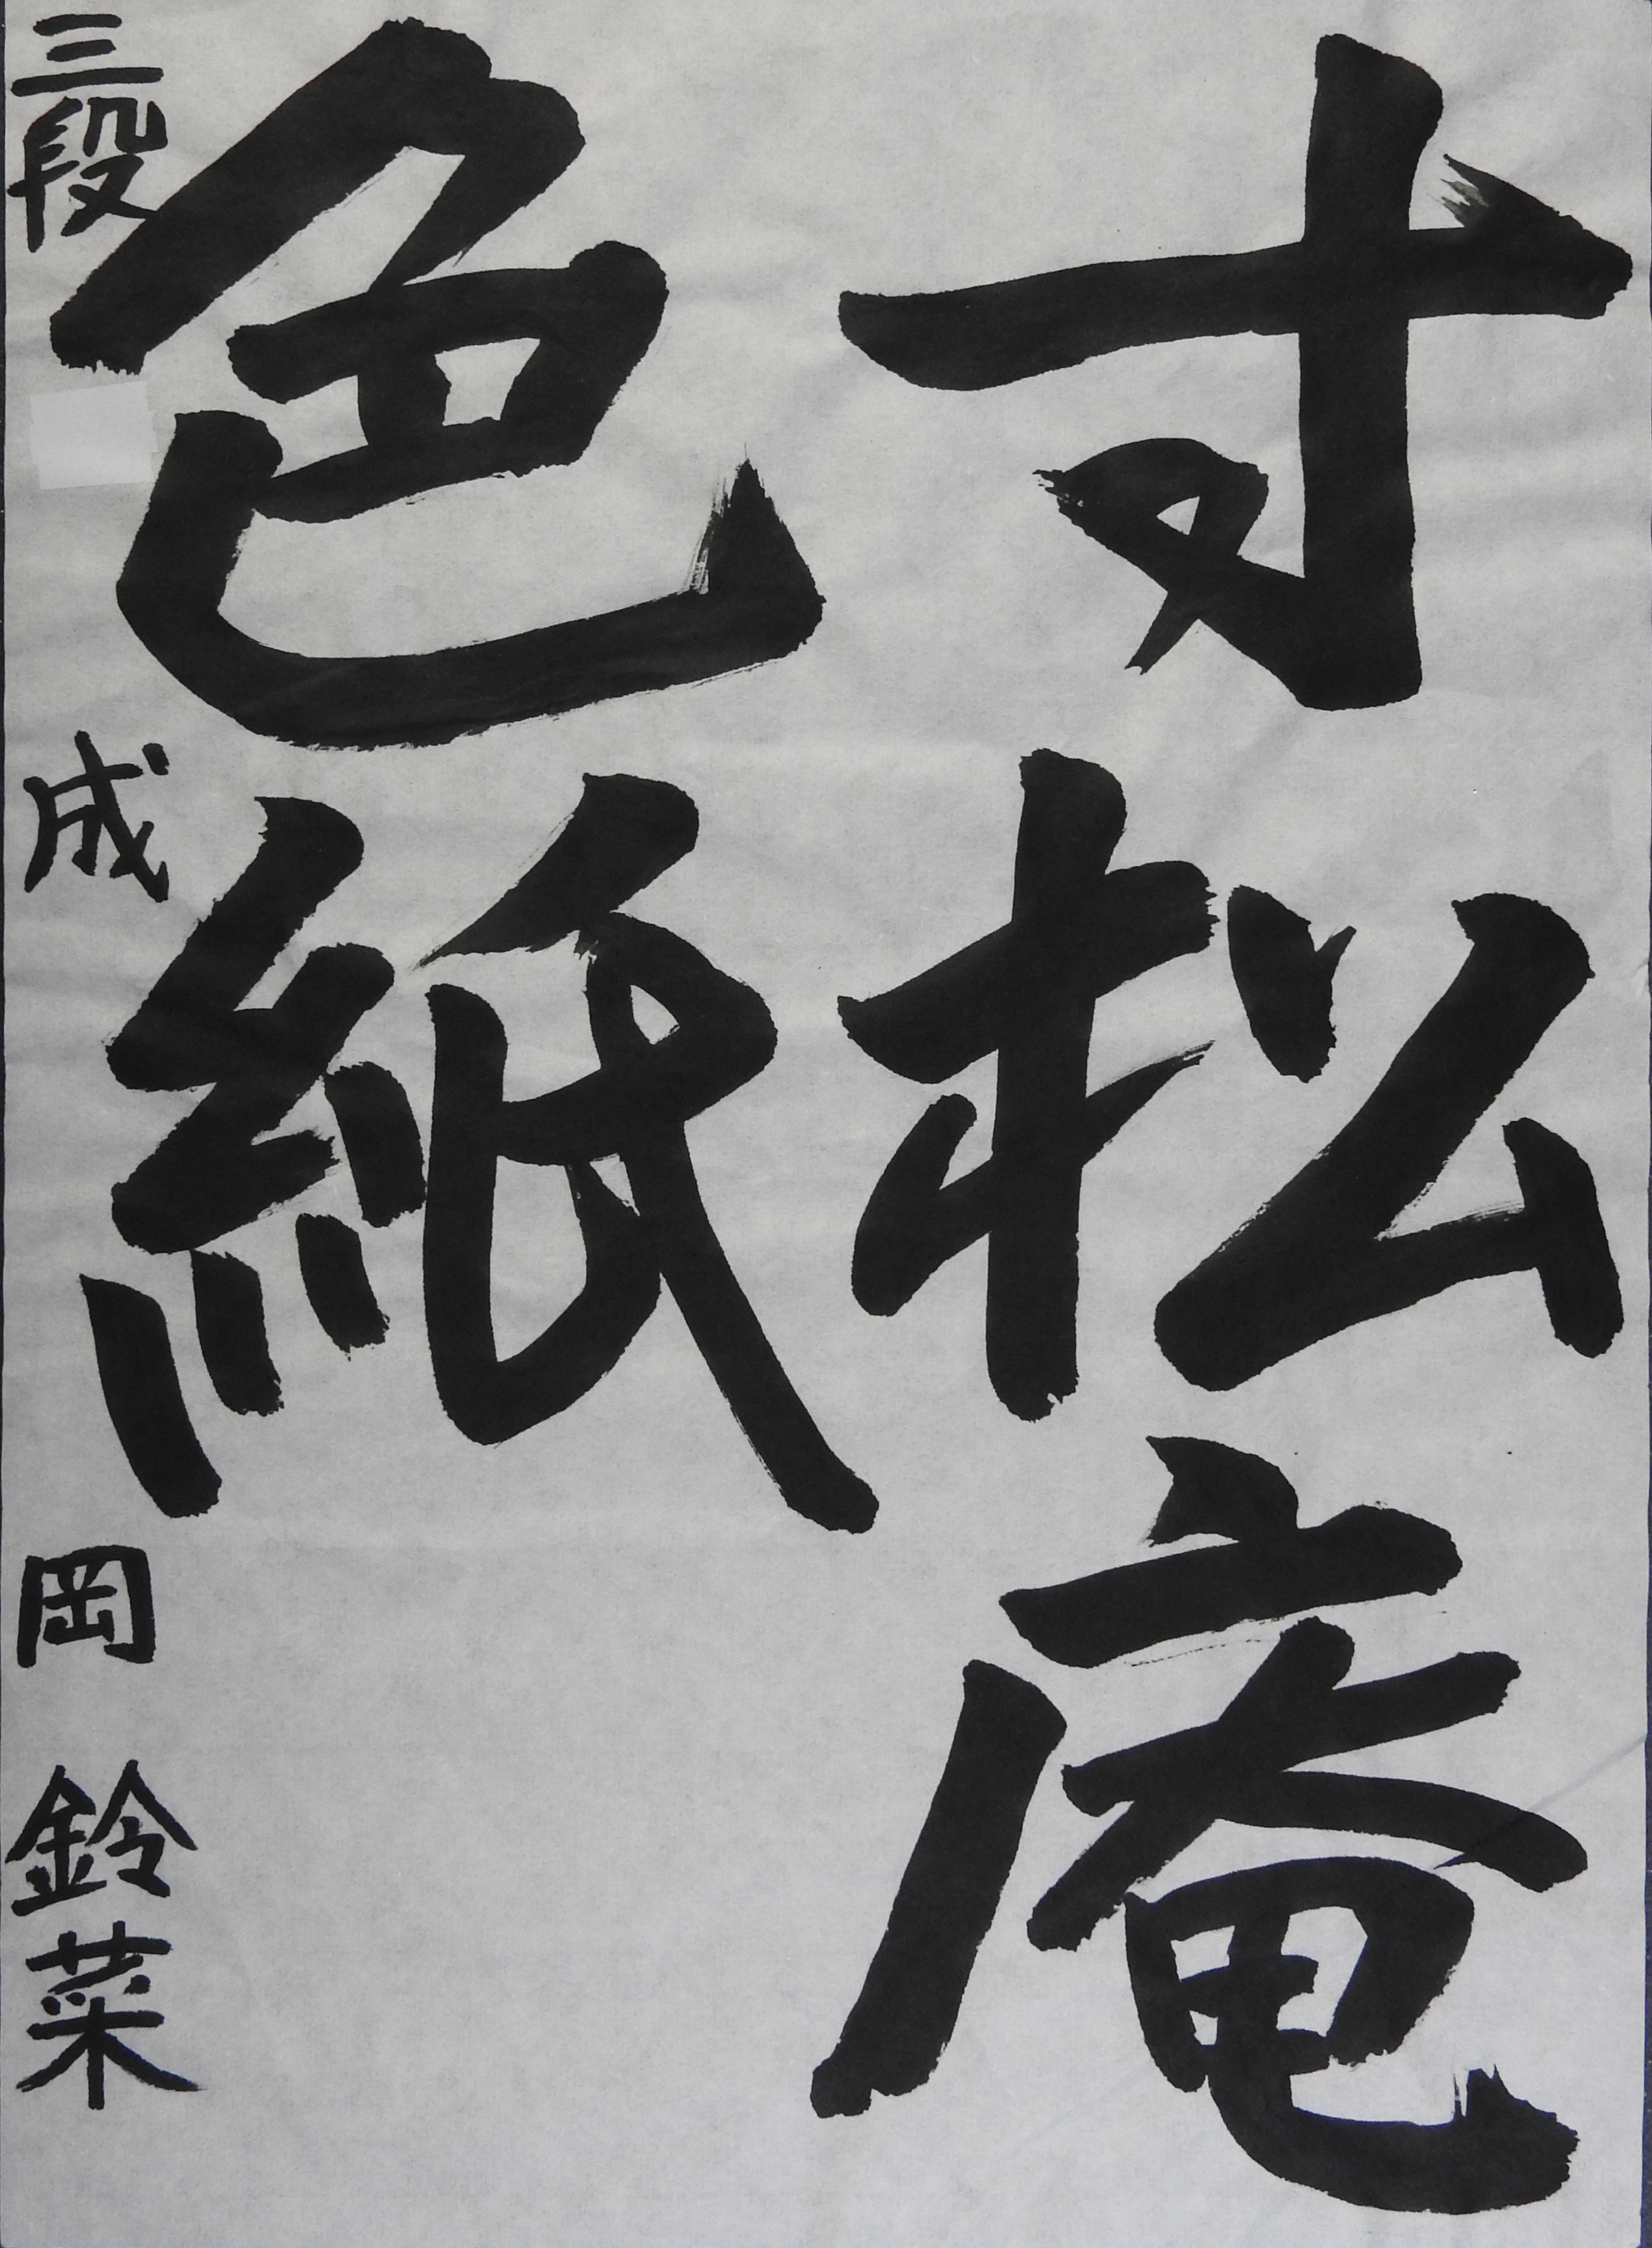 寸松庵
色紙
三段 成岡 鈴菜